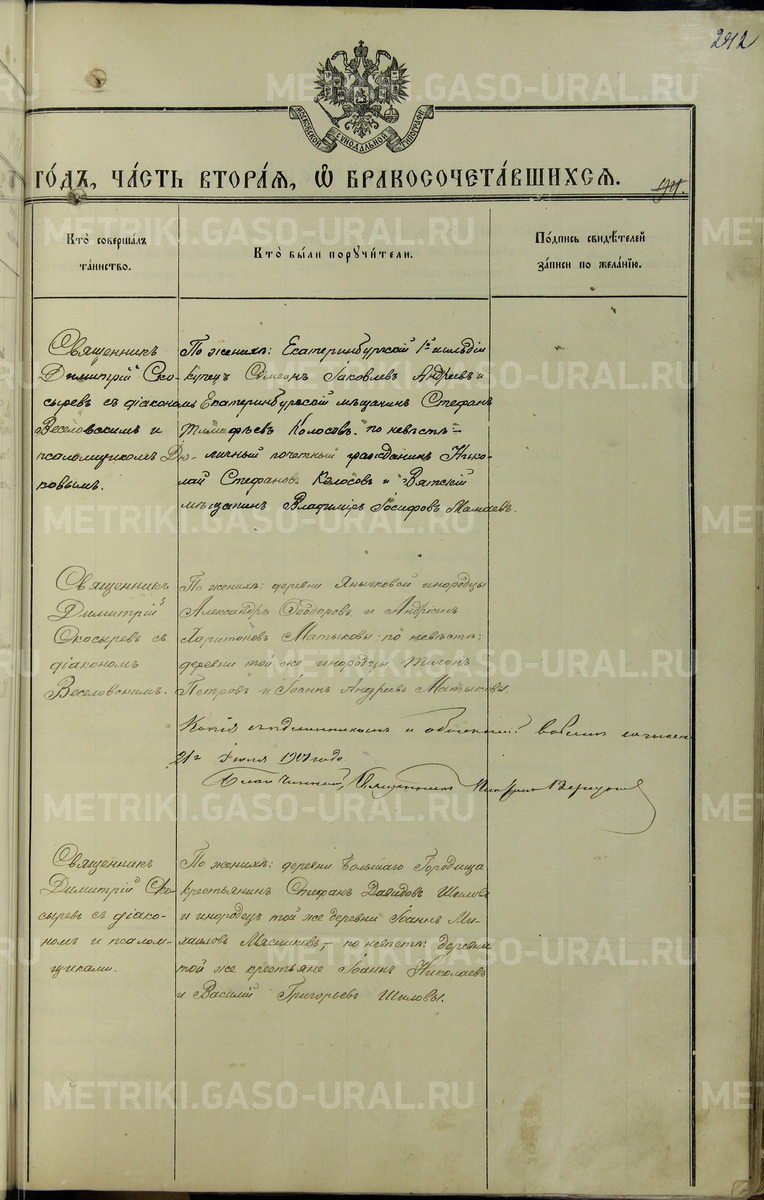 242
МОСКОВСКОЙ СѴНОДАЛЬНОЙ ТИПОГРАФІИ
ГО́ДЪ, ЧА́СТЬ ВТОРА́Я, Ѽ БРАКОСОЧЕТА́ВШИХСЯ.
Кто̀ соверша́лъ
та́инство.
Кто̀ бы́ли поручи́тели.
По́дпись свидѣ́телей
за́писи по жела́нїю.
Священникъ
Димитрій Ско-
сыревъ съ діакономъ
Веселовскимъ и
псаломщикомъ Дю-
ковымъ.
По женихѣ: Екатеринбургскій 1й гильдіи
купецъ Симеонъ Іаковлевъ Андреевъ и
Екатеринбургскій мѣщанинъ Стефанъ
Тимофѣевъ Колосовъ. по невѣстѣ:
личный почетный гражданинъ Нико-
лай Стефановъ Колосовъ и Вятскій
мѣщанинъ Владиміръ Іосифовъ Мамаевъ.
Священникъ
Димитрій
Скосыревъ съ
діакономъ
Веселовскимъ.
По женихѣ: деревни Янычковой инородцы
Александръ Ѳеодоровъ и Андреянъ
Харитоновъ Матыковы: по невѣстѣ:
деревни той же инородцы Тихонъ
Петровъ и Іоаннъ Андреевъ Матыковы.
Копія съ подлинникомъ и обыскомъ вовсемъ согласна
21го Іюля 1907 года
Благочинный, Священникъ
Священникъ
Димитрій Ско-
сыревъ съ діако-
номъ и псалом-
щиками.
По женихѣ: деревни Большаго Городища
крестьянинъ Стефанъ Давидовъ Шиловъ
и инородецъ той же деревни Іоаннъ Ми-
хаиловъ Мясниковъ, – по невѣстѣ: деревни
той же крестьяне Іоаннъ Николаевъ
и Василій Григорьевъ Шиловы.
METRIKI.GASO-URAL.RU